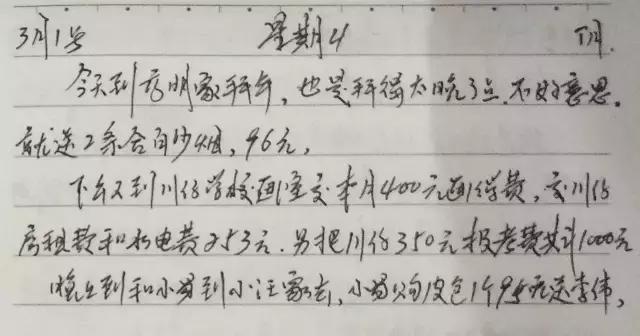 3月1号 星期4 下月
今天到彦明家拜年,也是拜得太晚了点,不好意思。
就送2条合白沙烟,96元,
下午又到川伢学校画室交本月400元画学费,交川伢
房租费和水电费253元.另把川伢350元报考费共计1000元
晚上到和小易到小汪家去,小易购皮包1个95元送李伟,